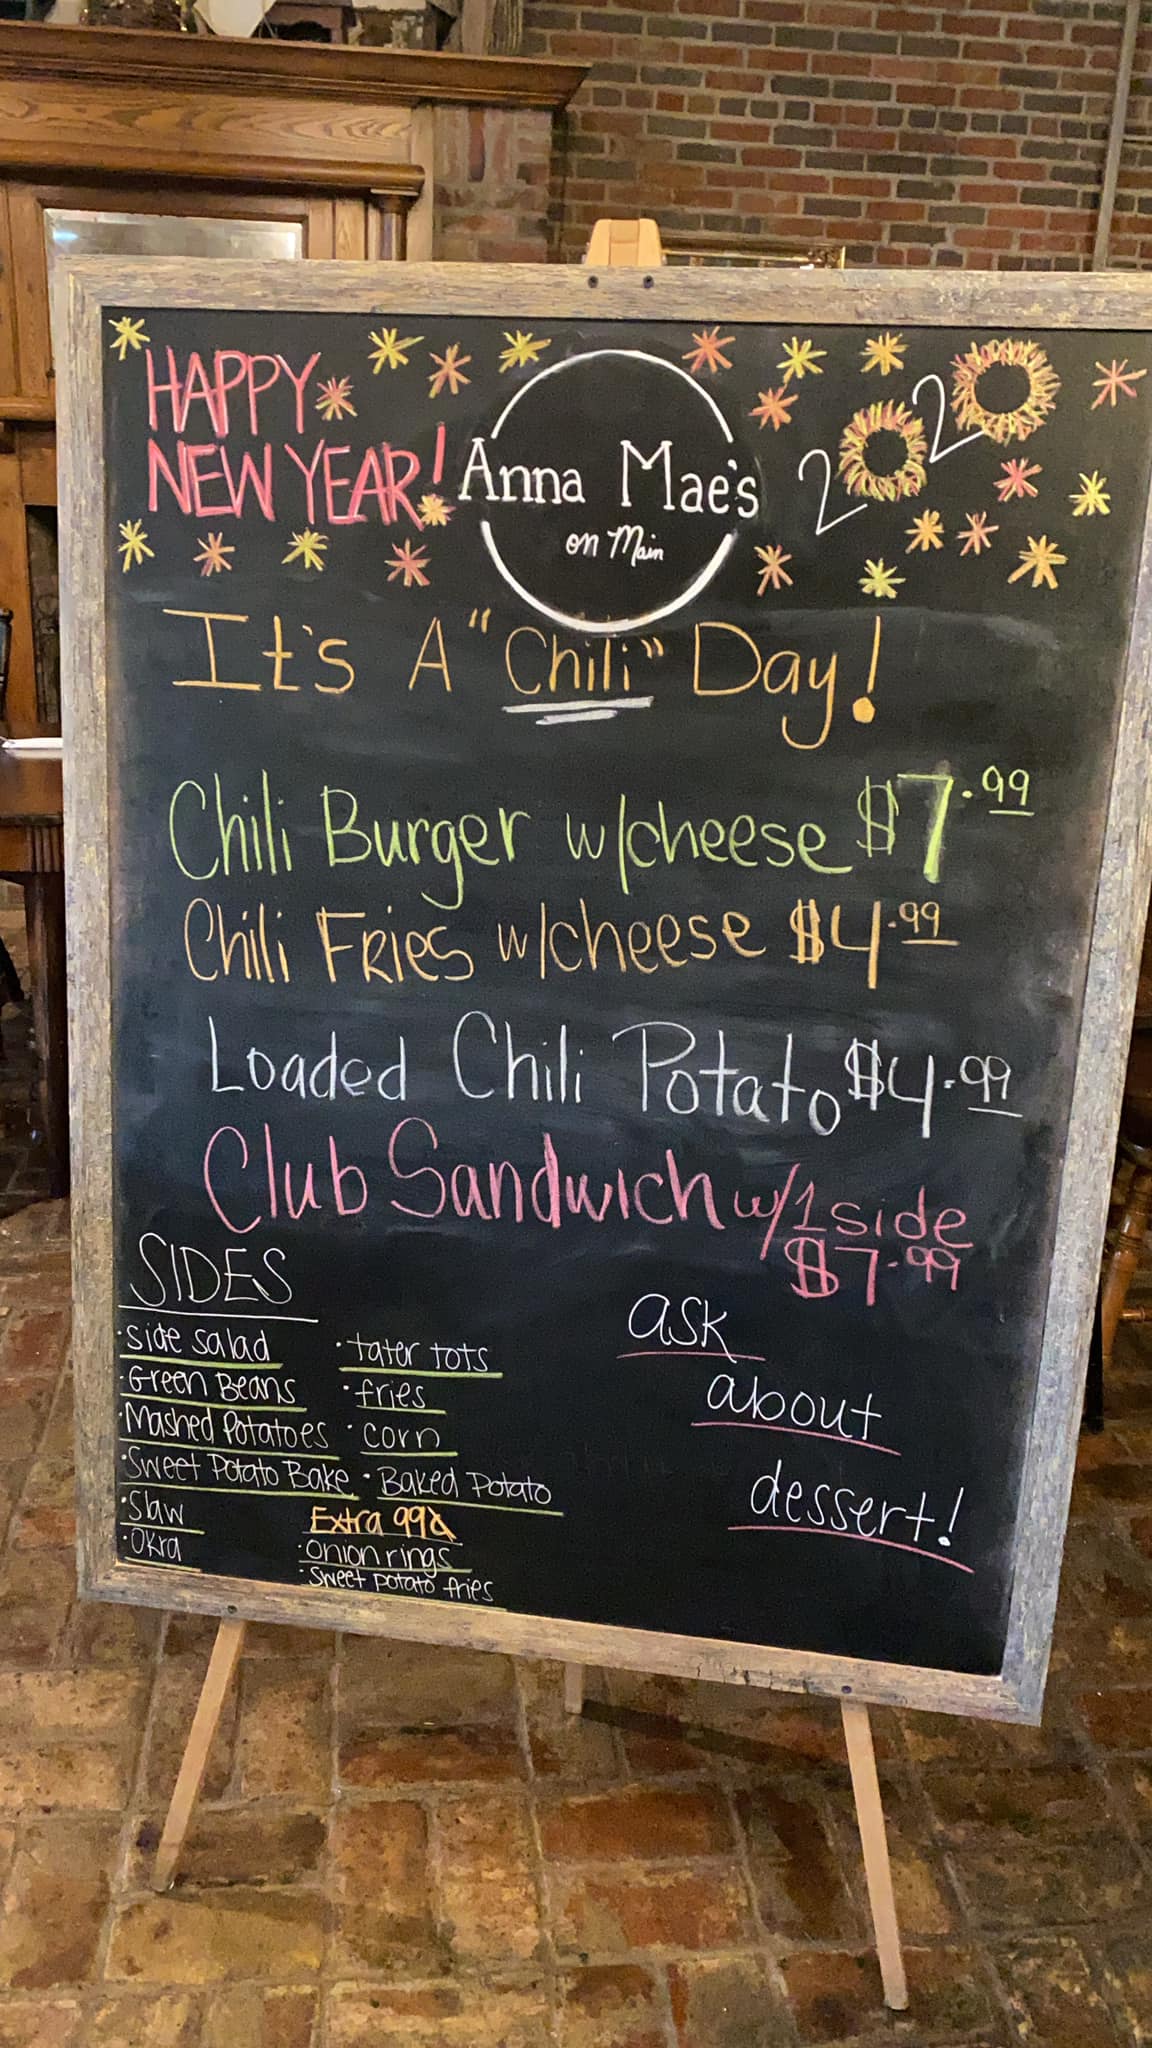 HAPPY
NEW YEAR!
Anna Mae's
on Main
2020
It's A "Chili" Day!
Chili Burger w/cheese $7.99
Chili Fries w/cheese $4.99
Loaded Chili Potato $4.99
Club Sandwich w/1 side
$7.99
SIDES
·side salad
·Green Beans
·Mashed Potatoes
·Sweet Potato Bake
·Slaw
·Okra
·tater tots
·fries
·corn
·Baked Potato
Extra 99¢
·onion rings
·sweet potato fries
ask
about
dessert!